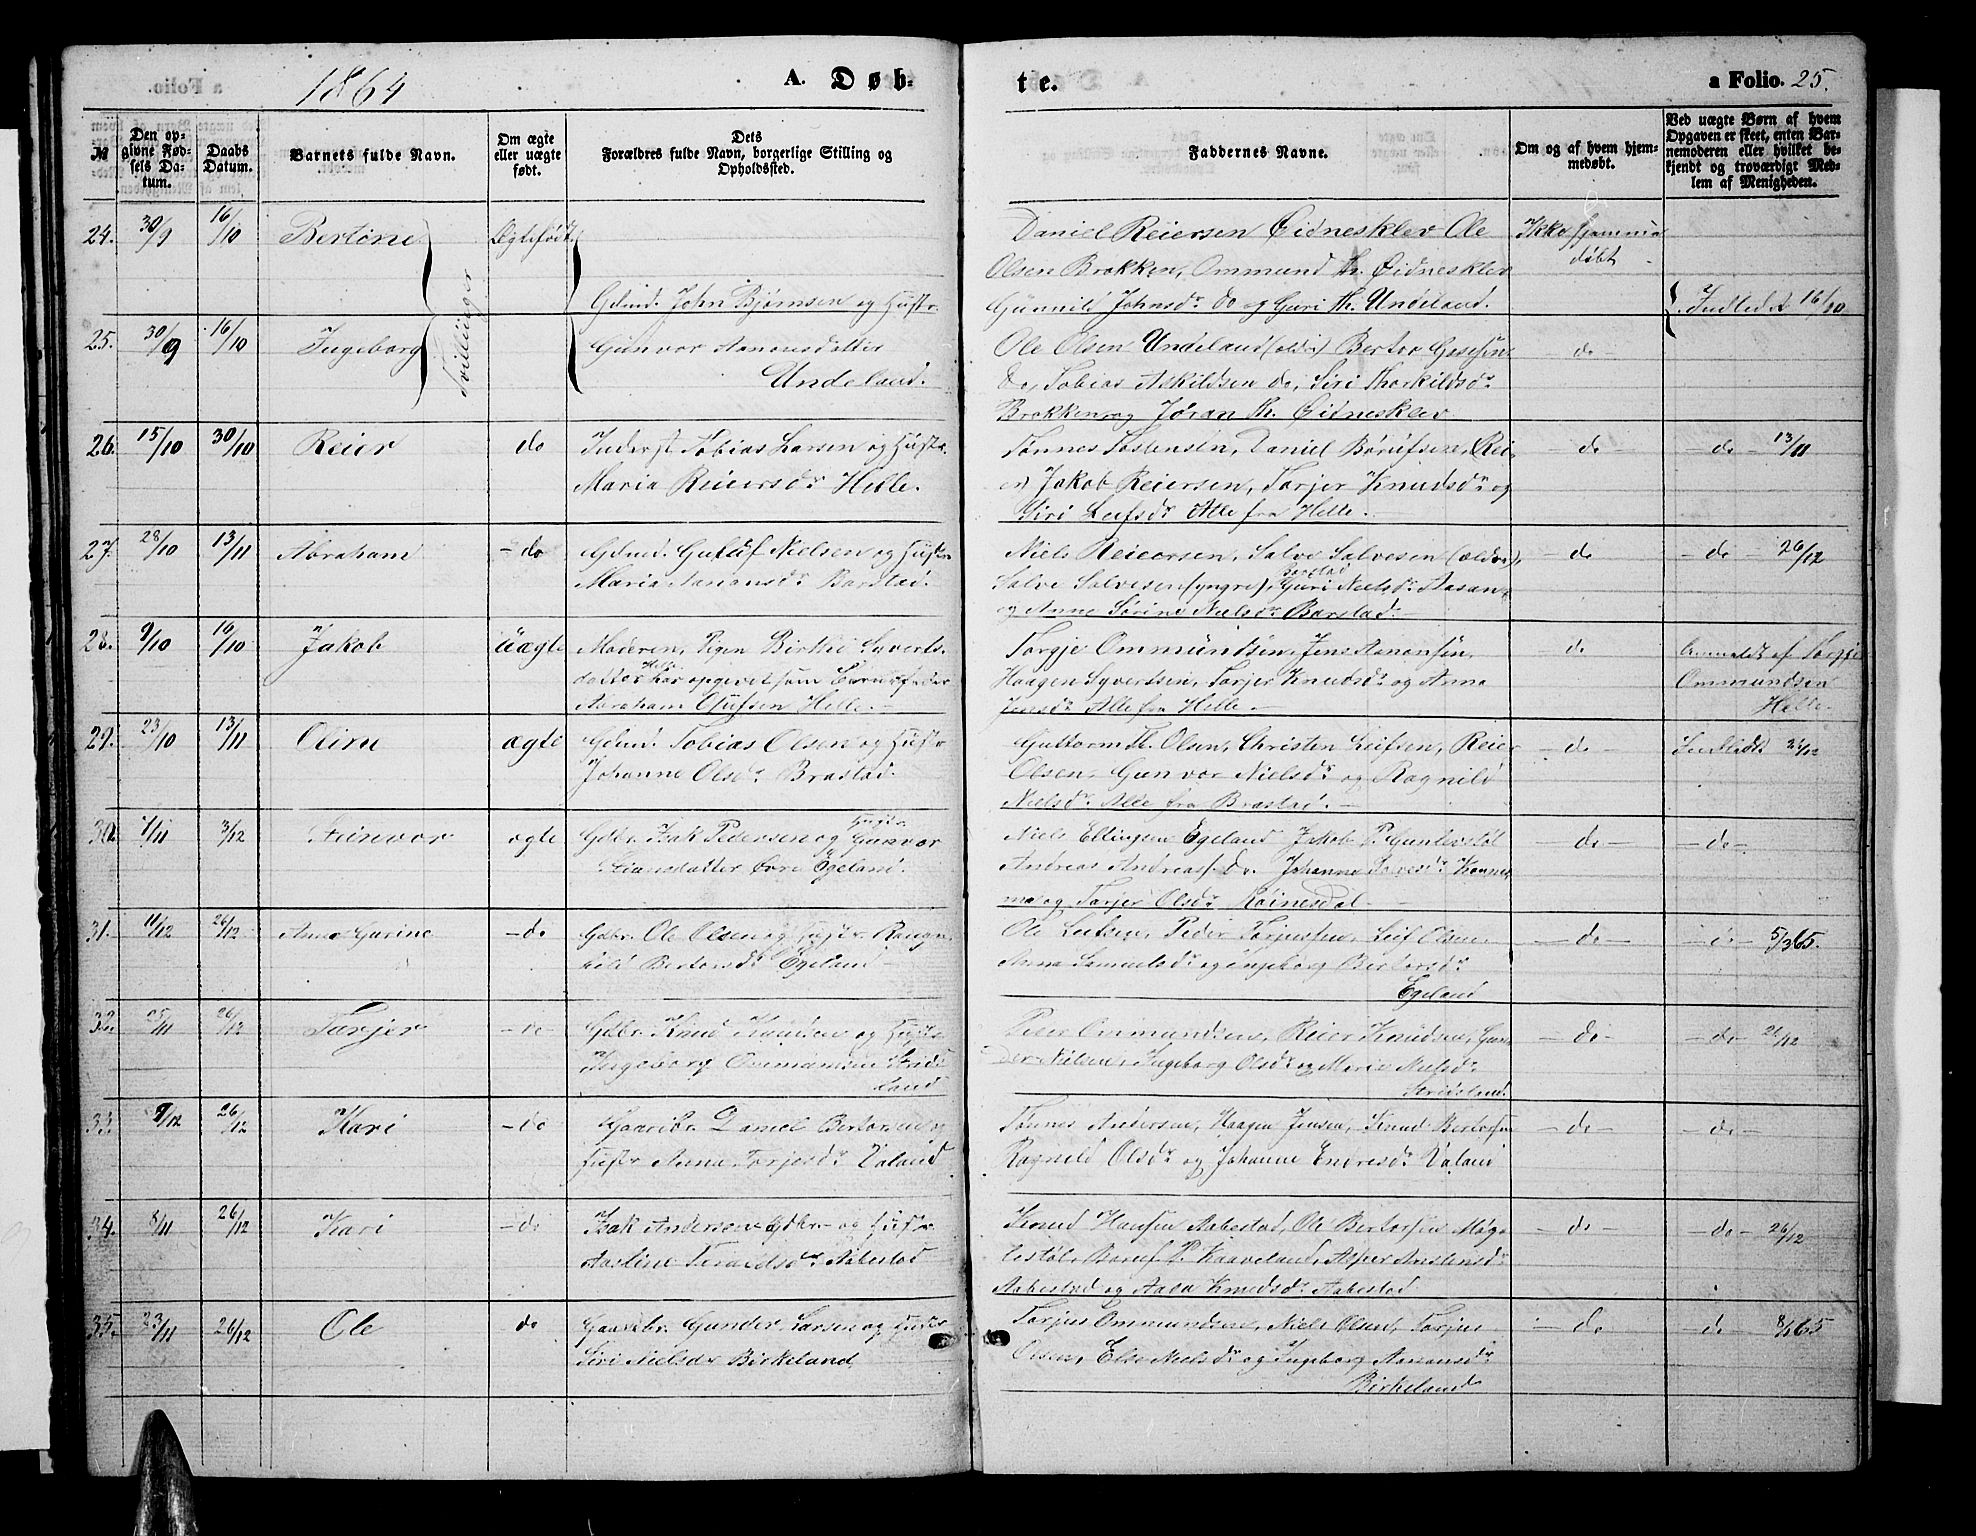 1864
A. Døb-
te.
a Folio. 25.
№
Den op-
givne Fød-
sels Da-
tum.
Daabs
Datum.
Barnets fulde Navn.
Om ægte
eller uægte
født.
Dets
Forældres fulde Navn, borgerlige Stilling og
Opholdssted.
Faddernes Navne.
Om og af hvem hjem-
medøbt.
Ved uægte Børn af hvem
Opgaven er skeet, enten Bar-
nemoderen eller hvilket be-
kjendt og troværdigt Med-
lem af Menigheden.
24. 30/9 16/10 Bertine Ægtefødt.
Tvillinger
Gdmd. John Bjørnsen og Hustr.
Daniel Reiersen Eidnesklev Ole
Olsen Brokken, Ommund Th. Eidnesklev
Gunnild Johnsdr do og Guri Th. Undeland.
Ikke hjemme
døbt
Indledet 16/10
25. 30/9 16/10 Ingeborg
Gunvor Aanonsdatter
Undeland.
Ole Olsen Undeland (ældre) Berthe
do, Tobias Askildsen do, Siri Thorkildsdr
Brokken og Jøran Th. Eidnesklev
do
26. 15/10 30/10 Reier do
Inderst Tobias Larsen og Hustr.
Maria Reiersdr Helle.
Tønnes Tostensen, Daniel Børufsen, Rei-
er Jakob Reiersen, Torjer Knudsdr og
Siri Leifsdr Alle fra Helle.
do do 13/11
27. 28/10 13/11 Abraham do
Gdmd. Guttuf Nielsen og Hustr.
Maria Aanonsdr Barstad.
Niels Reiersen, Salve Salvesen (ældre),
Salve Salvesen (yngre), Barstad Guri Nielsdr Aasan
og Anne Serine Nielsdr Barstad.
do do 26/12
28. 9/10 16/10 Jakob uægte
Moderen, Pigen Birthe Syverts-
datter Helle har opgivet som Barnefader
Abraham Olufsen Helle.
Torgje Ommundsen, Jens Aanonsen,
Haagen Syvertsen, Torjer Knudsdr og Anna
Jensdr Alle fra Helle.
do
Anmeldt af Torgje
Ommundsen
Helle.
29. 23/10 13/11 Oline ægte
Gdmd. Tobias Olsen og Hustr
Johanne Olsdr Brastad.
Guttorm Th. Olsen, Christen Leifsen, Reier
Olsen, Gunvor Nielsdr og Ragnild
Nielsdr Alle fra Brastad.
do Indledt 26/12
30. 7/11 3/12 ægte
Gdbr. Isak Pedersen og Hustr. Gunvor
Øvre Egeland.
Niels Ellingsen Egeland Jakob P. Guntlevstøl
Andreas Andreass. do. Johanne Salvesdr
og Torjer Olsdr
do do
31. 11/12 26/12 Anne Gurine do
Gdbr. Ole Olsen og Hustr. Ragn-
hild Bertorsdr Egeland
Ole Leifsen, Peder Torjussen, Leif Olsen,
Anna Samuelsdr og Ingeborg Bertorsdr
Egeland
do do 5/3 65.
32. 25/11 26/12 Torjer do
Gdbr. Knud Knudsen og Hustr.
Ingeborg
land
Peder Ommundsen, Reier Knudsen, Gun-
der Nielsen, Ingeborg Olsdr og Marie Nielsdr
do do 26/12
33. 9/12 26/12 Kari do
Gaardbr. Daniel Bertorsen og
Hustr Anna Torjusdr Valand
Tønnes Andersen, Haagen Jensen, Knud Bertorsen
Ragnild Olsdr og Johanne Endresdr Valand
do do
34. 8/11 26/12 Kari do
Isak Andersen Gdbr. og Hustr.
Aasline Aabestad
Knud Hansen Aabestad, Ole Bertorsen Møg-
lestøl, Børuf P. Kaaveland, Asper
Aabestad og Aasa Knudsdr Aabestad
do do 26/12
35. 23/11 26/12 Ole do
Gaardbr. Gunder Larsen og Hustr
Siri Nielsdr Birkeland
Torjus Ommundsen, Niels Olsen, Torjus
Olsen, Else Nielsdr og Ingeborg Aanonsdr
Birkeland
do do 8/1 65